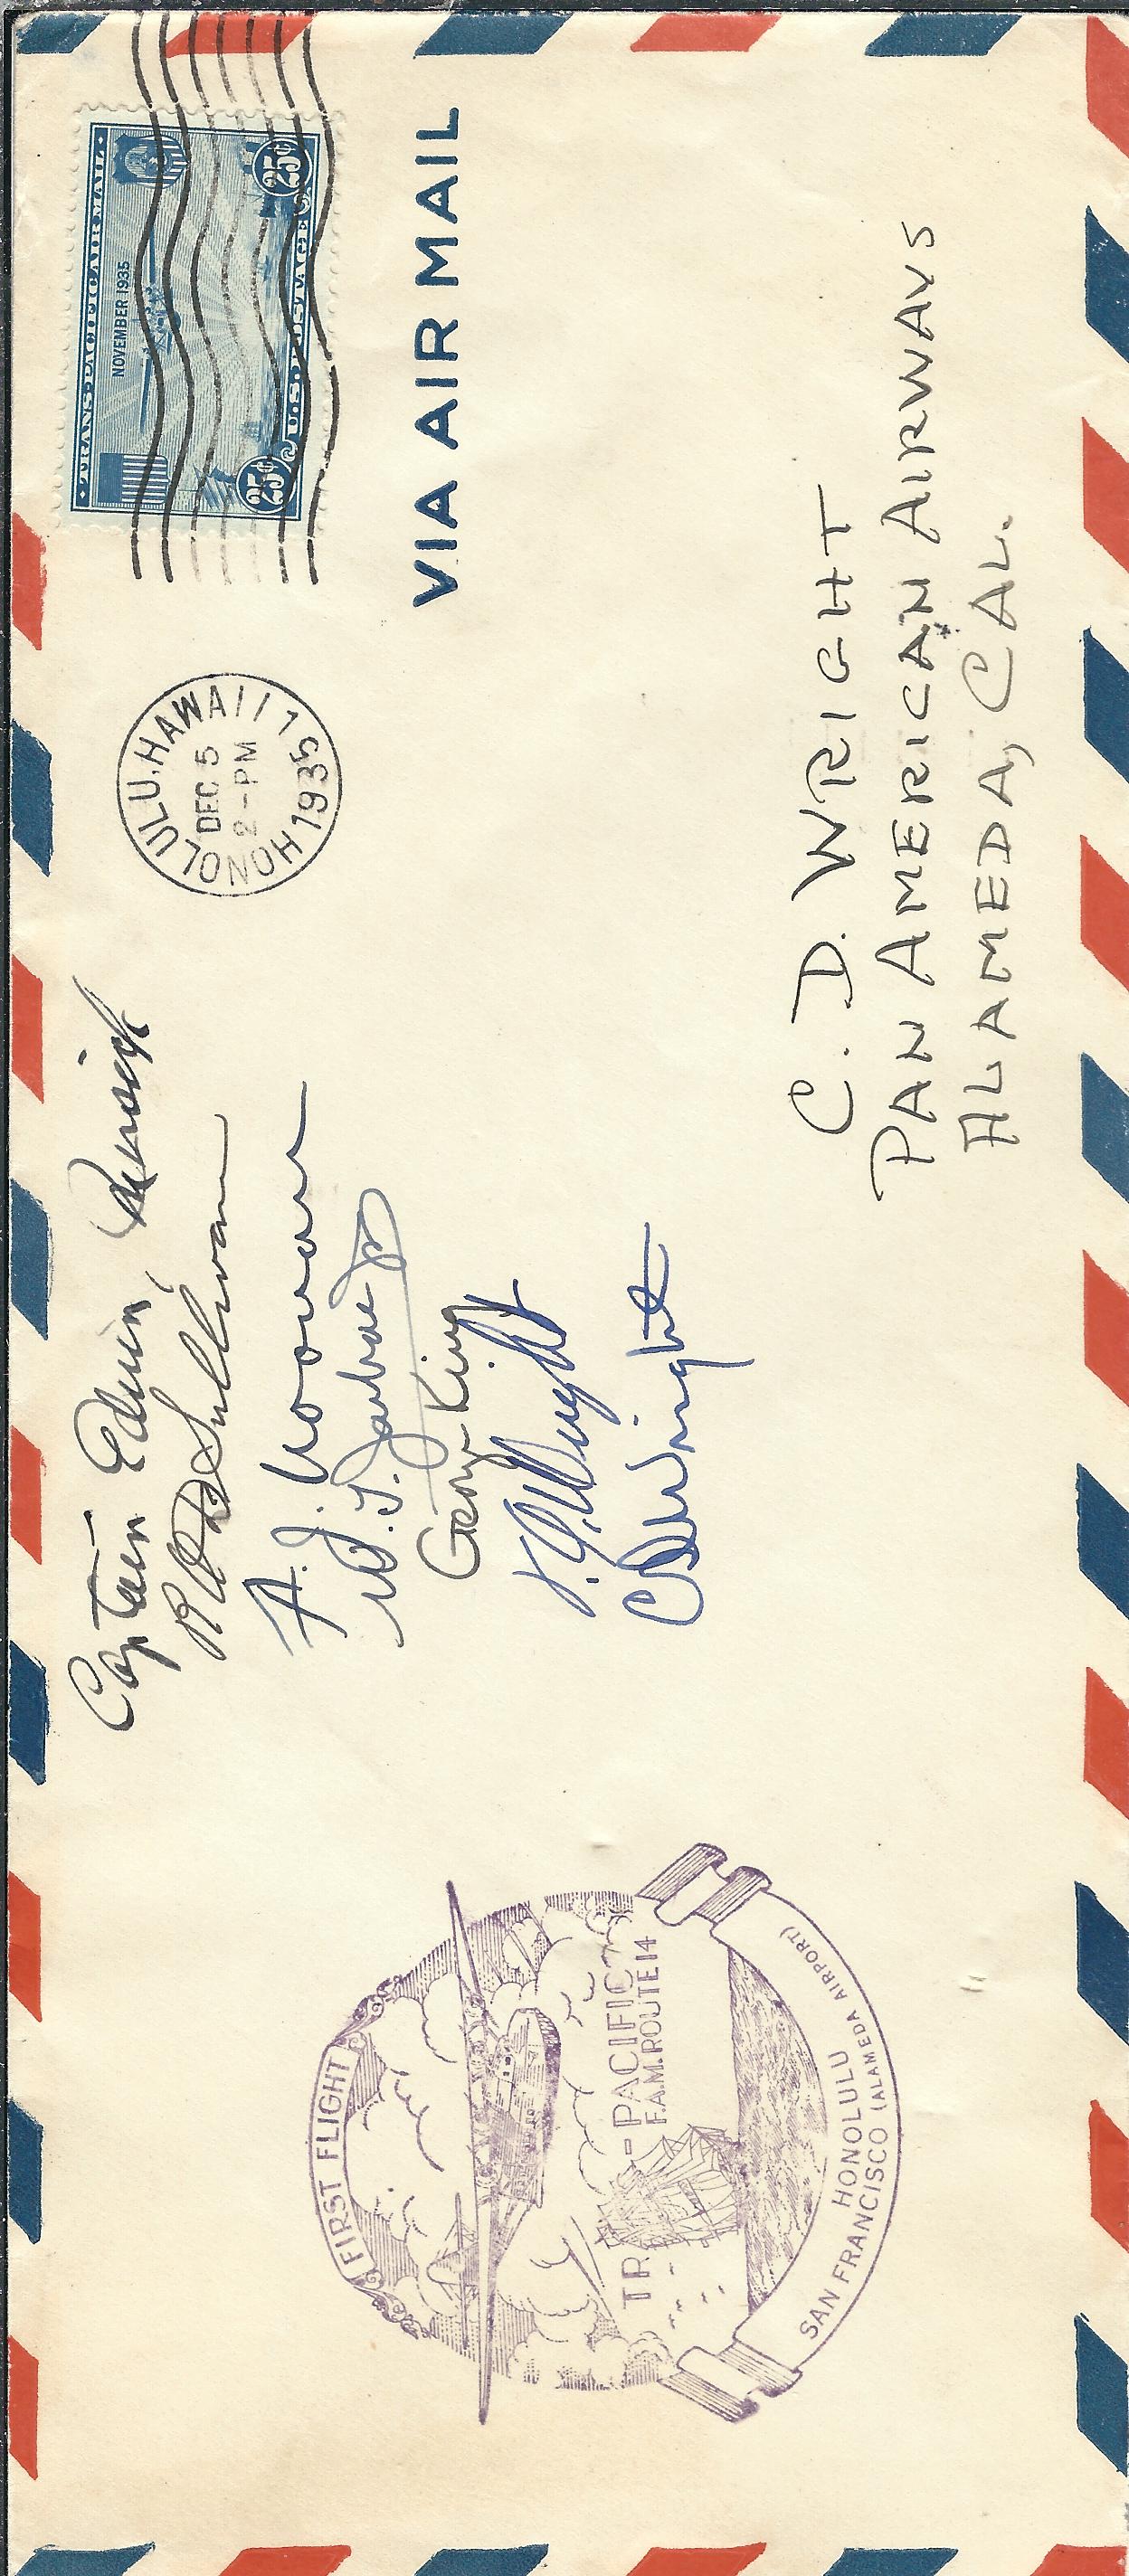 FIRST FLIGHT
TRANS-PACIFIC
F.A.M. ROUTE 14
HONOLULU
SAN FRANCISCO (ALAMEDA AIRPORT)
Captain Edwin Musick
R O D Sullivan
George King
C D Wright
HONOLULU, HAWAII 1
DEC 5
2 - PM
1935
·TRANS-PACIFIC AIR MAIL·
NOVEMBER 1935
25¢ U.S. POSTAGE 25¢
VIA AIR MAIL
C. D. WRIGHT
PAN AMERICAN AIRWAYS
ALAMEDA, CAL.